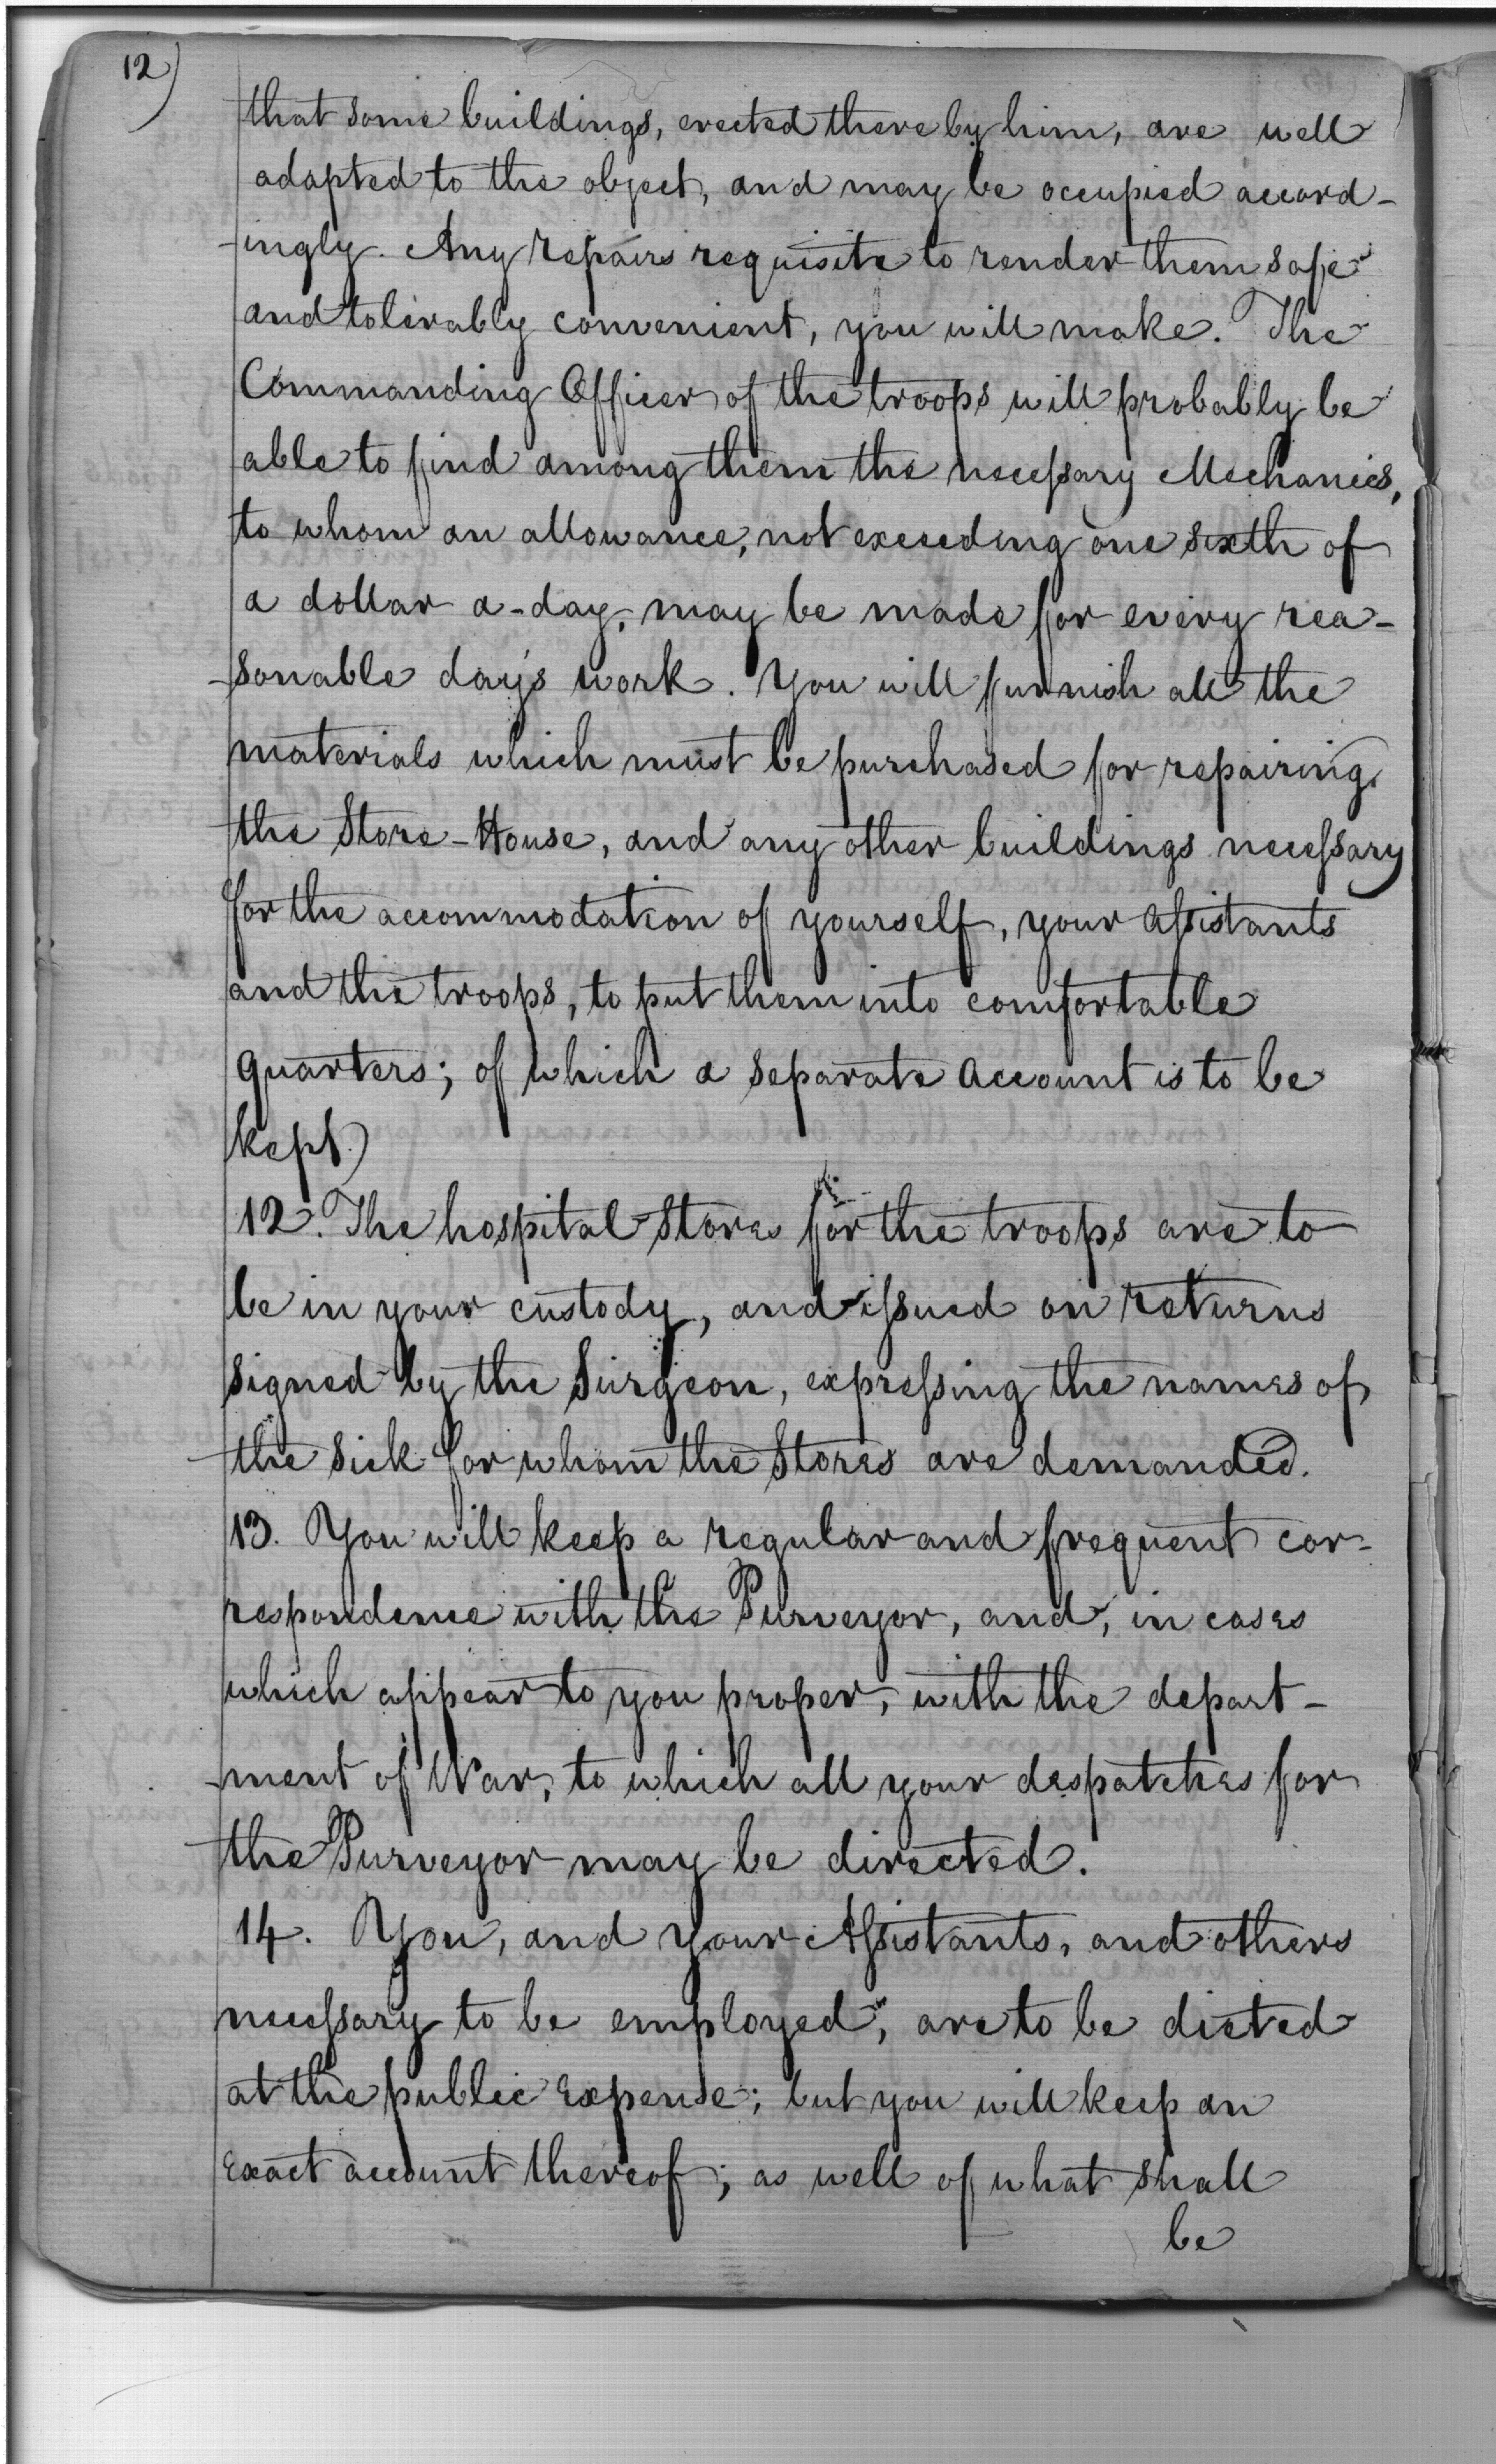 12)
that some buildings, erected there by him, are well
adapted to the object, and may be occupied accord-
-ingly. Any repairs requisite to render them safe
and tolerably convenient, you will make. The
Commanding Officer of the troops will probably be
able to find among them the necessary Mechanics,
to whom an allowance, not exceeding one sixth of
a dollar a-day, may be made for every rea-
-sonable day's work. You will furnish all the
materials which must be purchased for repairing
the Store-House, and any other buildings necessary
for the accommodation of yourself, your Assistants
and the troops, to put them into comfortable
quarters; of which a separate account is to be
kept.
12. The hospital Stores for the troops are to
be in your custody, and issued on returns
signed by the Surgeon, expressing the names of
the sick for whom the Stores are demanded.
13. You will keep a regular and frequent cor-
respondence with the Purveyor, and, in cases
which appear to you proper, with the depart-
-ment of War, to which all your despatches for
the Purveyor may be directed.
14. You, and your Assistants, and others
necessary to be employed, are to be dieted
at the public Expense; but you will keep an
exact account thereof; as well of what shall
be